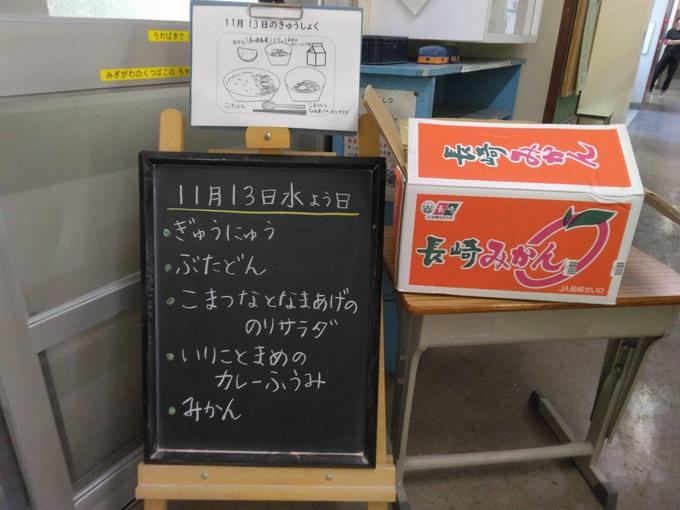 うわばきで
みぎがわのくつばこの
11月13日のきゅうしょく
みかん
ぶたどん
11月13日水よう日
・ぎゅうにゅう
・ぶたどん
・こまつなとなまあげの
のりサラダ
・いりことまめの
カレーふうみ
・みかん
長崎みかん
長崎みかん
JA長崎せいひ